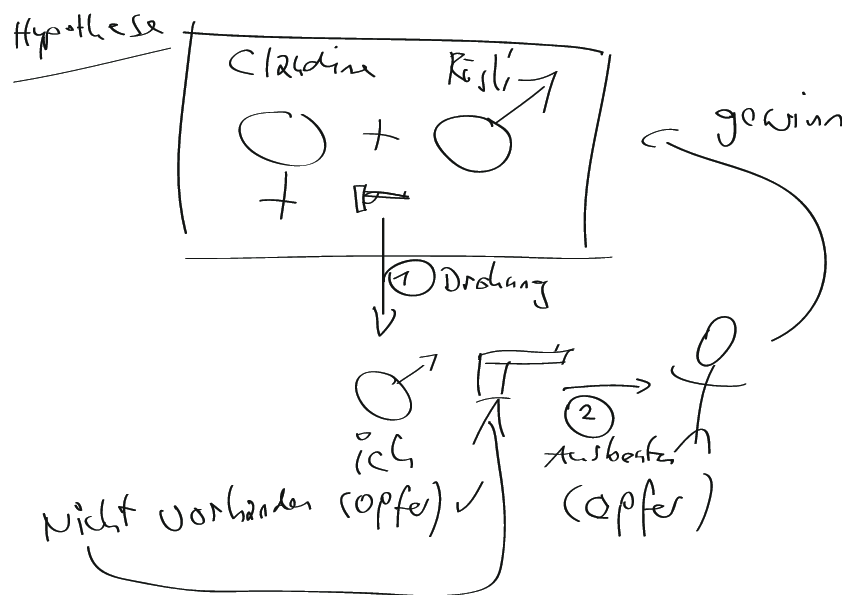 Hypothese
Claudine
Rösli
gewinn
1 Drohung
2
ich
Ausbeuten
Nicht vorhanden (opfer) ✓
(opfer)